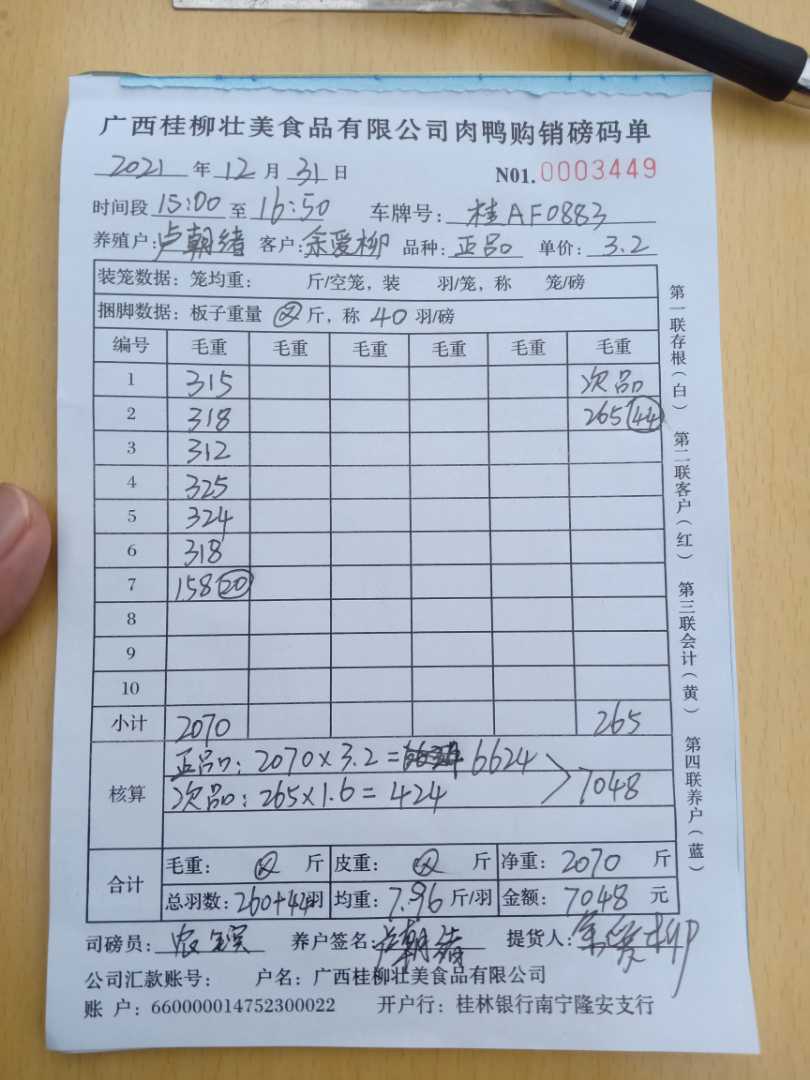 广西桂柳壮美食品有限公司肉鸭购销磅码单
2021 年 12 月 31 日 N01.0003449
时间段 15:00 至 16:50 车牌号: 桂AF0883
养殖户: 卢朝绪 客户: 余爱柳 品种: 正品 单价: 3.2
装笼数据: 笼均重: 斤/空笼, 装 羽/笼, 称 笼/磅
捆脚数据: 板子重量 斤, 称 40 羽/磅
编号 毛重 毛重 毛重 毛重 毛重 毛重
1 315 次品
2 318 265 44
3 312
4 325
5 324
6 318
7 158 20
8
9
10
小计 2070 265
核算 正品: 2070×3.2= 6624
次品: 265×1.6=424
7048
合计 毛重: 斤 皮重: 斤 净重: 2070 斤
总羽数: 260+44羽 均重: 7.96 斤/羽 金额: 7048 元
司磅员: 养户签名: 卢朝绪 提货人: 余爱柳
公司汇款账号: 户名: 广西桂柳壮美食品有限公司
账 户: 660000014752300022 开户行: 桂林银行南宁隆安支行
第一联存根(白) 第二联客户(红) 第三联会计(黄) 第四联养户(蓝)